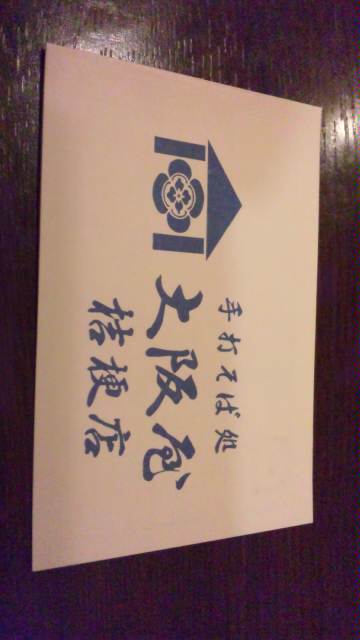 手打そば処
大阪屋
桔梗店